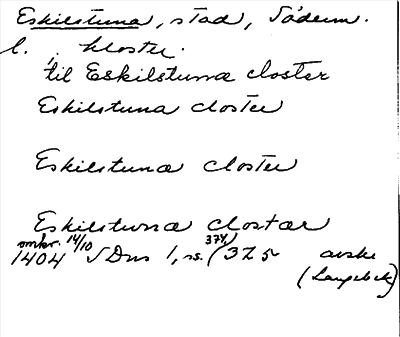 Eskilstuna, stad, Söderm.
l., kloster.
til Eskilstuna closter
Eskilstuna closter
Eskilstuna closter
Eskilstuna clostær
omkr. 14/10 374,
1404 SDns 1, ss. (375 avskr
(Langebek)